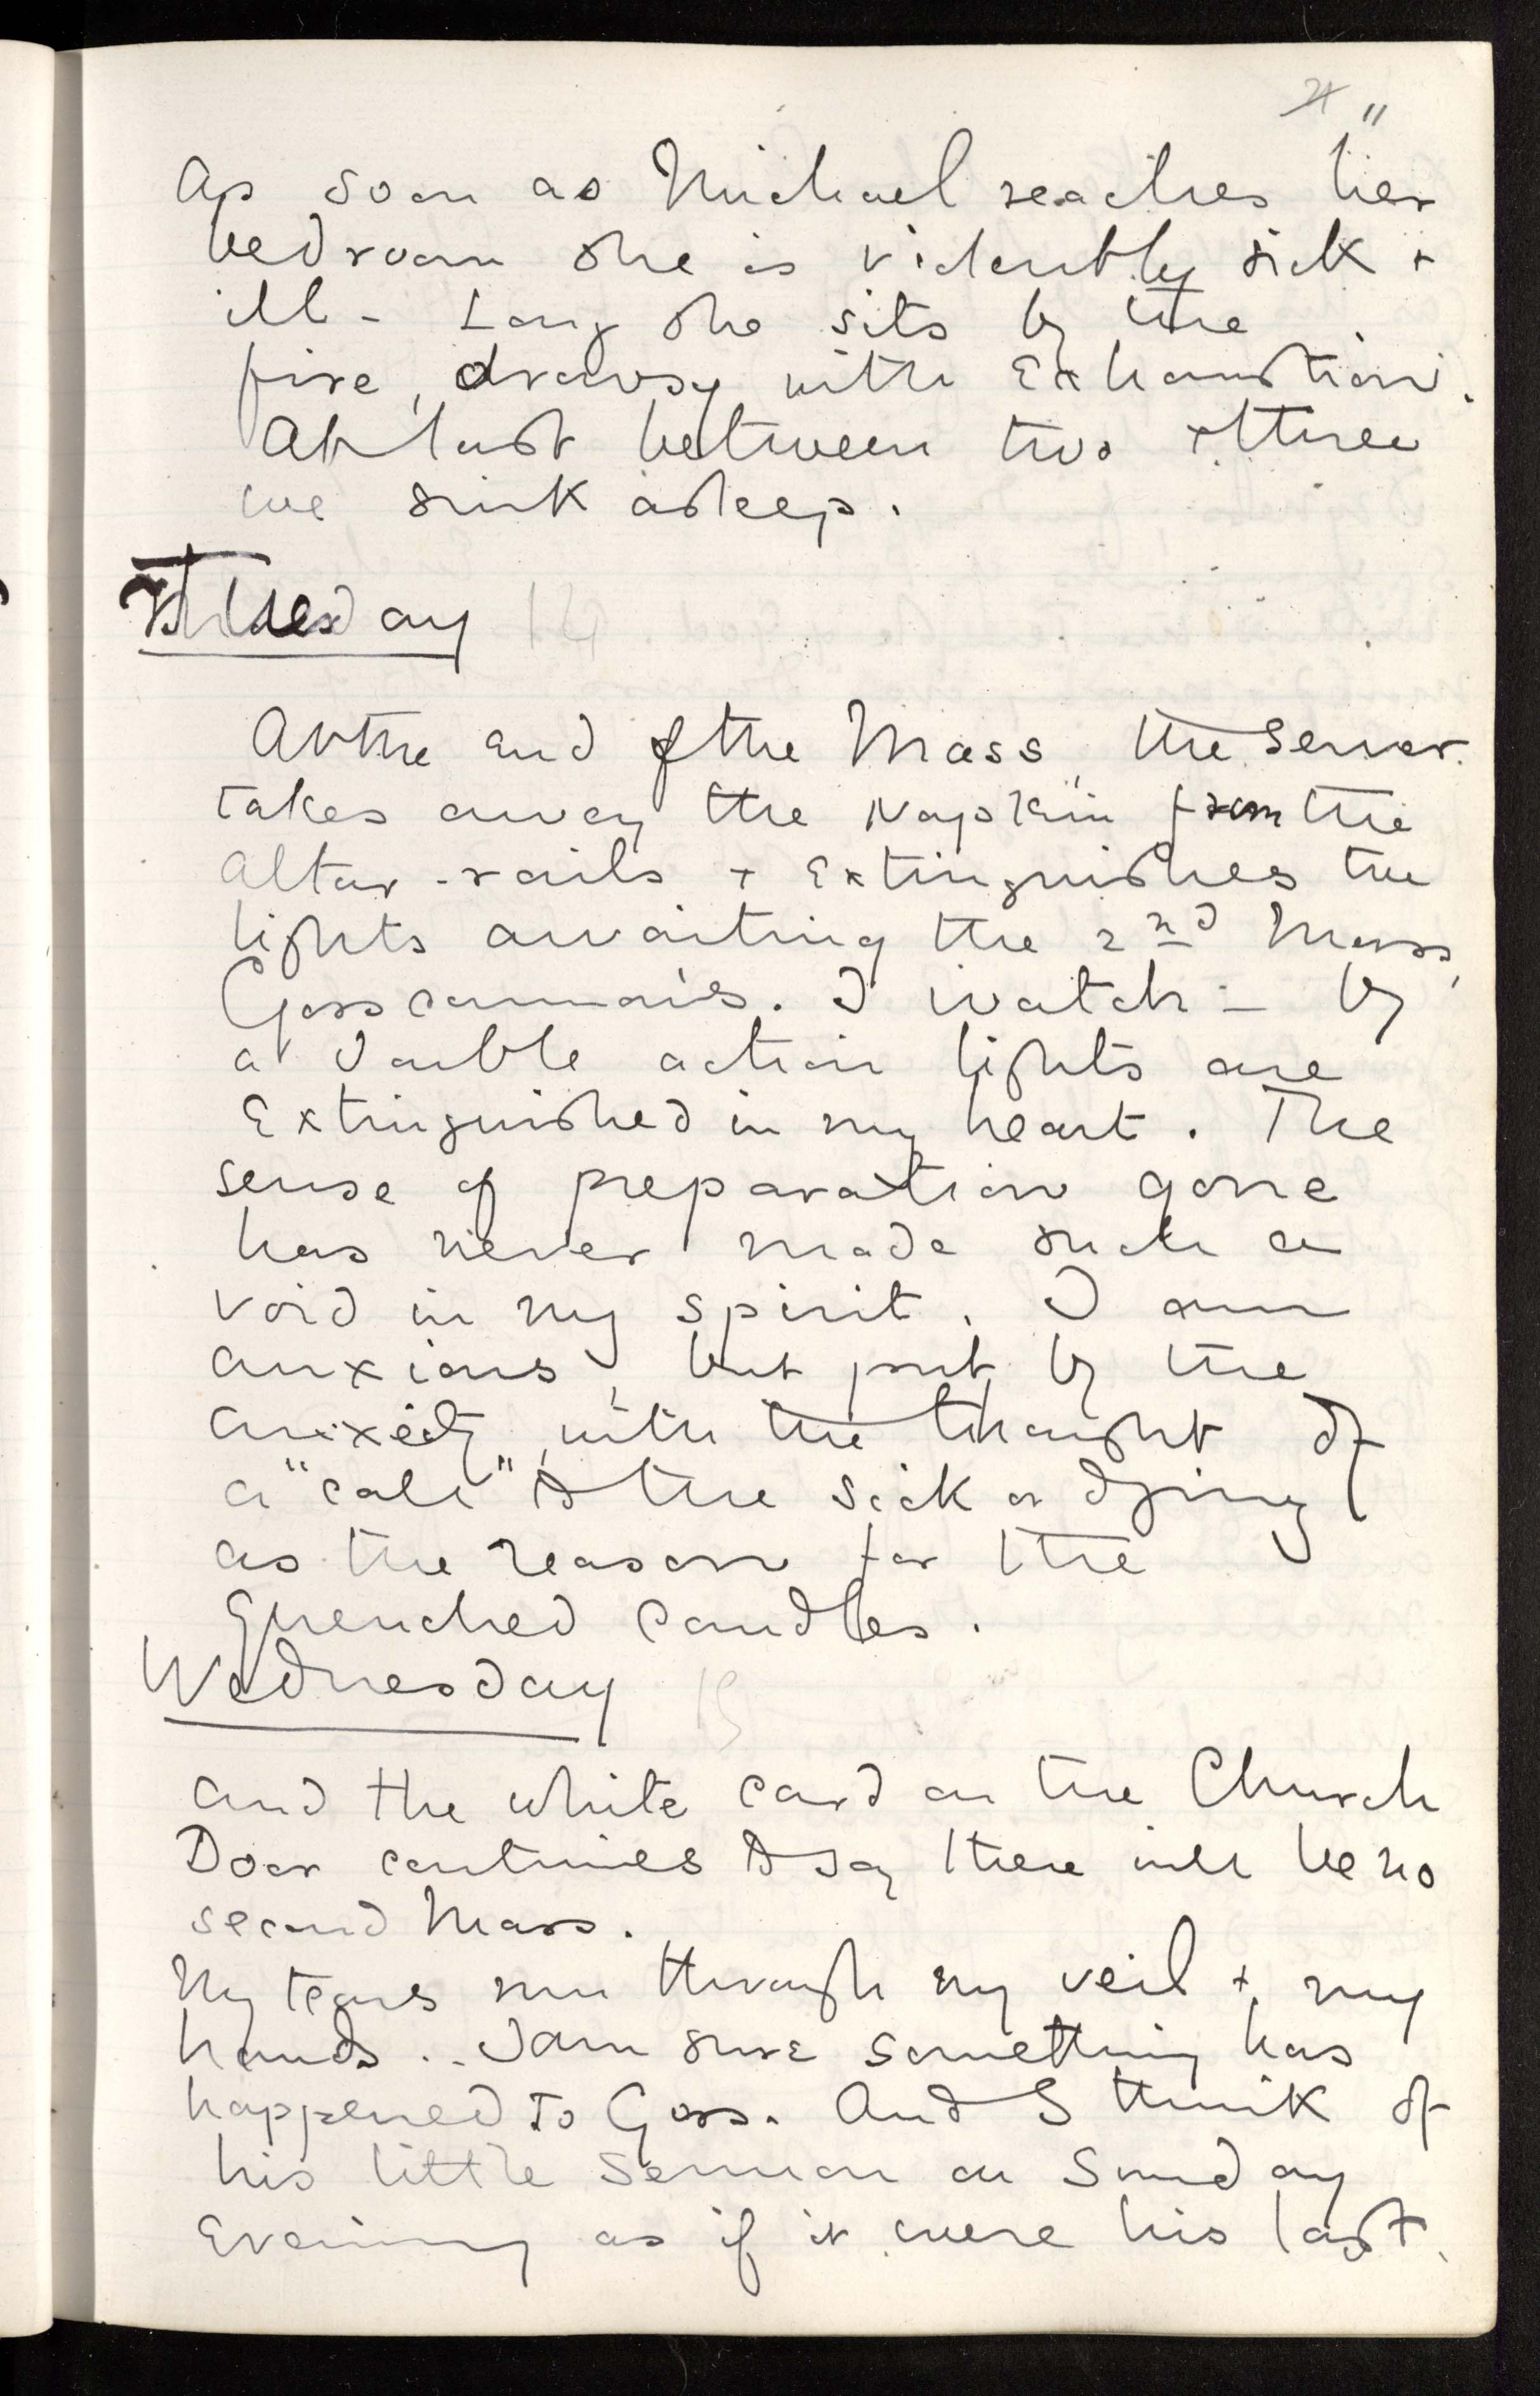 11
As soon as Michael reaches her
bedroom she is violently sick +
ill – Long she sits by the
fire, drowsy with exhaustion.
At last between two + three
we sink asleep.
Tuesday 14
At the end of the Mass, the server
takes away the napkin from the
altar-rails + extinguishes the
lights awaiting the 2nd Mass,
Goss communis. I watch – by
a double action lights are
extinguished in my heart. The
sense of preparation gone
has never made such a
void in my spirit. I am
anxious, but put by the
anxiety, with the thought of
a "call" to the sick or dying
as the reason for the
quenched candles.
Wednesday 15
And the white card on the Church
Door continues to say there will be no
second Mass.
My tears run through my veil + my
hands.. I am sure something has
happened to Goss. And I think of
his little Sermon on Sunday
Evening as if it were his last.